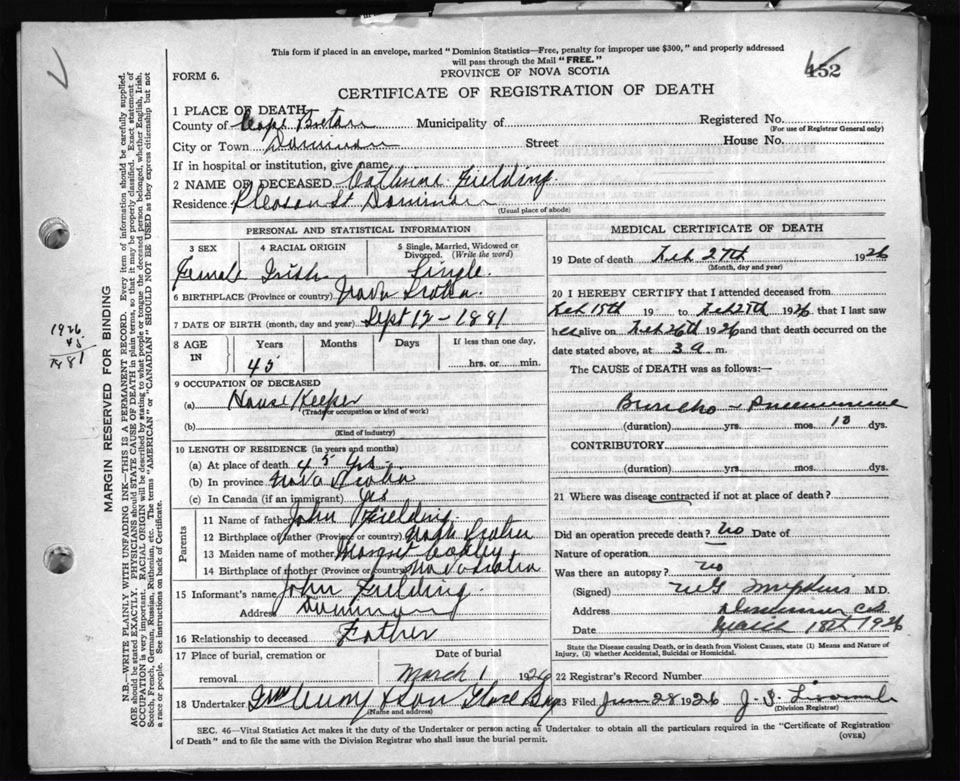 This form if placed in an envelope, marked "Dominion Statistics—Free, penalty for improper use $300," and properly addressed
will pass through the Mail "FREE."
452
FORM 6.
PROVINCE OF NOVA SCOTIA
CERTIFICATE OF REGISTRATION OF DEATH
1 PLACE OF DEATH
County of Cape Breton Municipality of Registered No.
(For use of Registrar General only)
City or Town Dominion Street House No.
If in hospital or institution, give name
2 NAME OF DECEASED Catherine Fielding
Residence Pleasan St Dominion
(Usual place of abode)
PERSONAL AND STATISTICAL INFORMATION
3 SEX 4 RACIAL ORIGIN 5 Single, Married, Widowed or Divorced. (Write the word)
Female Irish Single.
6 BIRTHPLACE (Province or country) Nova Scotia
7 DATE OF BIRTH (month, day and year) Sept 12-1881
8 AGE IN Years Months Days If less than one day,
45 hrs. or min.
9 OCCUPATION OF DECEASED
(a) House Keeper
(Trade or occupation or kind of work)
(b)
(Kind of industry)
10 LENGTH OF RESIDENCE (in years and months)
(a) At place of death 45 Yrs
(b) In province Nova Scotia
(c) In Canada (if an immigrant) Yes
Parents
11 Name of father John Fielding
12 Birthplace of father (Province or country) Nova Scotia
13 Maiden name of mother Margret Oakley
14 Birthplace of mother (Province or country) Nova Scotia
15 Informant's name John Fielding
Address Dominion
16 Relationship to deceased Father
17 Place of burial, cremation or removal Date of burial
March 1 1926
18 Undertaker & Son Glace Bay
(Name and address)
MEDICAL CERTIFICATE OF DEATH
19 Date of death Feb 27th 1926
(Month, day and year)
20 I HEREBY CERTIFY that I attended deceased from
Feb 15th 19 to Feb 27th 1926 that I last saw
her alive on Feb 26th 1926 and that death occurred on
date stated above, at 3 a m.
The CAUSE of DEATH was as follows:—
Broncho-Pneumonia
(duration) yrs. mos. 10 dys.
CONTRIBUTORY
(duration) yrs. mos. dys.
21 Where was disease contracted if not at place of death?
Did an operation precede death? no Date of
Nature of operation
Was there an autopsy? no
(Signed) M.D.
Address Dominion C.B.
Date March 18th 1926
State the Disease causing Death, or in death from Violent Causes, state (1) Means and Nature of
Injury, (2) whether Accidental, Suicidal or Homicidal.
22 Registrar's Record Number
23 Filed June 28 1926 J. S.
(Division Registrar)
SEC. 46—Vital Statistics Act makes it the duty of the Undertaker or person acting as Undertaker to obtain all the particulars required in the "Certificate of Registration
of Death" and to file the same with the Division Registrar who shall issue the burial permit.
(OVER)
MARGIN RESERVED FOR BINDING
1926
45
1881
N.B.—WRITE PLAINLY WITH UNFADING INK—THIS IS A PERMANENT RECORD. Every item of information should be carefully supplied.
AGE should be stated EXACTLY. PHYSICIANS should STATE CAUSE OF DEATH in plain terms, so that it may be properly classified. Exact statement of
OCCUPATION is very important. RACIAL ORIGIN will be described by stating to what people or tongue the deceased person belonged, whether English, Irish,
Scotch, French, German, Russian, Ruthenian, etc. The terms "AMERICAN" or "CANADIAN" SHOULD NOT BE USED as they express citizenship but not
a race or people. See instructions on back of Certificate.